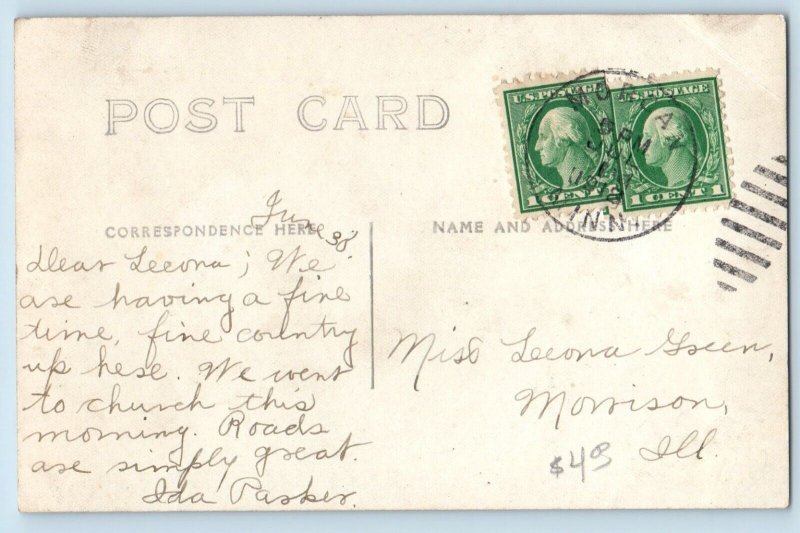 POST CARD
U.S. POSTAGE U.S. POSTAGE
1 CENT 1 CENT 1
MORGAN
PM
MINN.
CORRESPONDENCE HERE
NAME AND ADDRESS HERE
June 30
Dear Leeona; We
are having a fine
time, fine country
up here. We went
to church this
morning. Roads
are simply great.
Ida Parker.
Miss Leeona Green,
Morrison,
Ill.